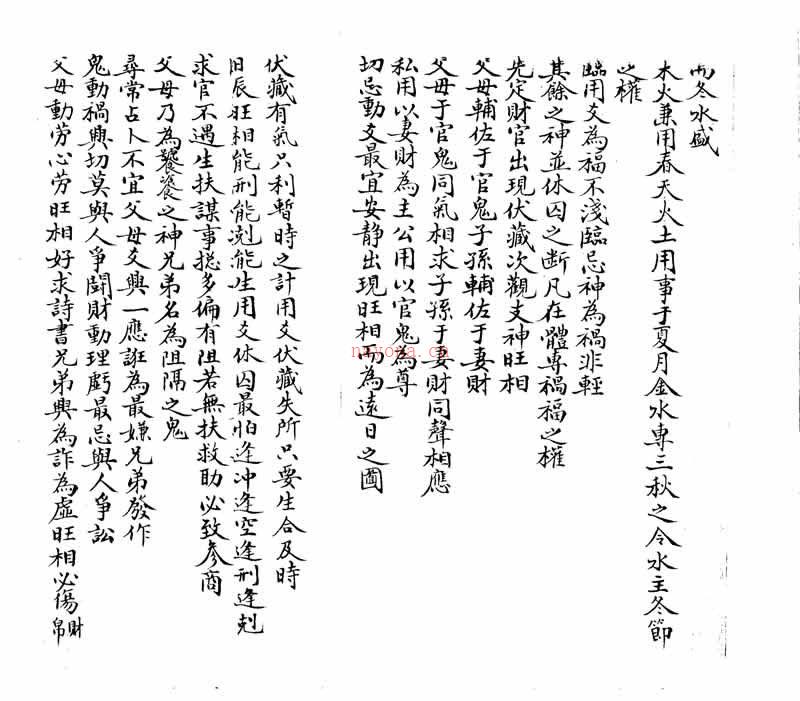 而冬水盛
木火兼用春天火土用事于夏月金水専三秋之令水主冬節
之權
臨用爻為福不淺臨忌神為禍非輕
其餘之神並休囚之断凡在體専禍福之權
先定財官出現伏藏次觀支神旺相
父母輔佐于官鬼子孫輔佐于妻財
父毋于官鬼同氣相求子孫于妻財同聲相應
私用以妻財為主公用以官鬼為尊
切忌動爻最宜安静出現旺相而為遠日之啚
伏藏有氣只利暫時之計用爻伏藏失所只要生合及時
日辰旺相能刑能剋能生用爻休囚最怕逢冲逢空逢刑逢剋
求官不遇生扶謀事摠多偏有阻若無扶救助必致参商
父母乃為饕餮之神兄弟名為阻隔之鬼
尋常占卜不宜父母爻興一應誑為最嫌兄弟發作
鬼動禍興切莫與人爭鬪財動理虧最忌與人爭訟
父毋動劳心劳旺相好求詩書兄弟興為詐為虛旺相必傷財帛
nayona.cn